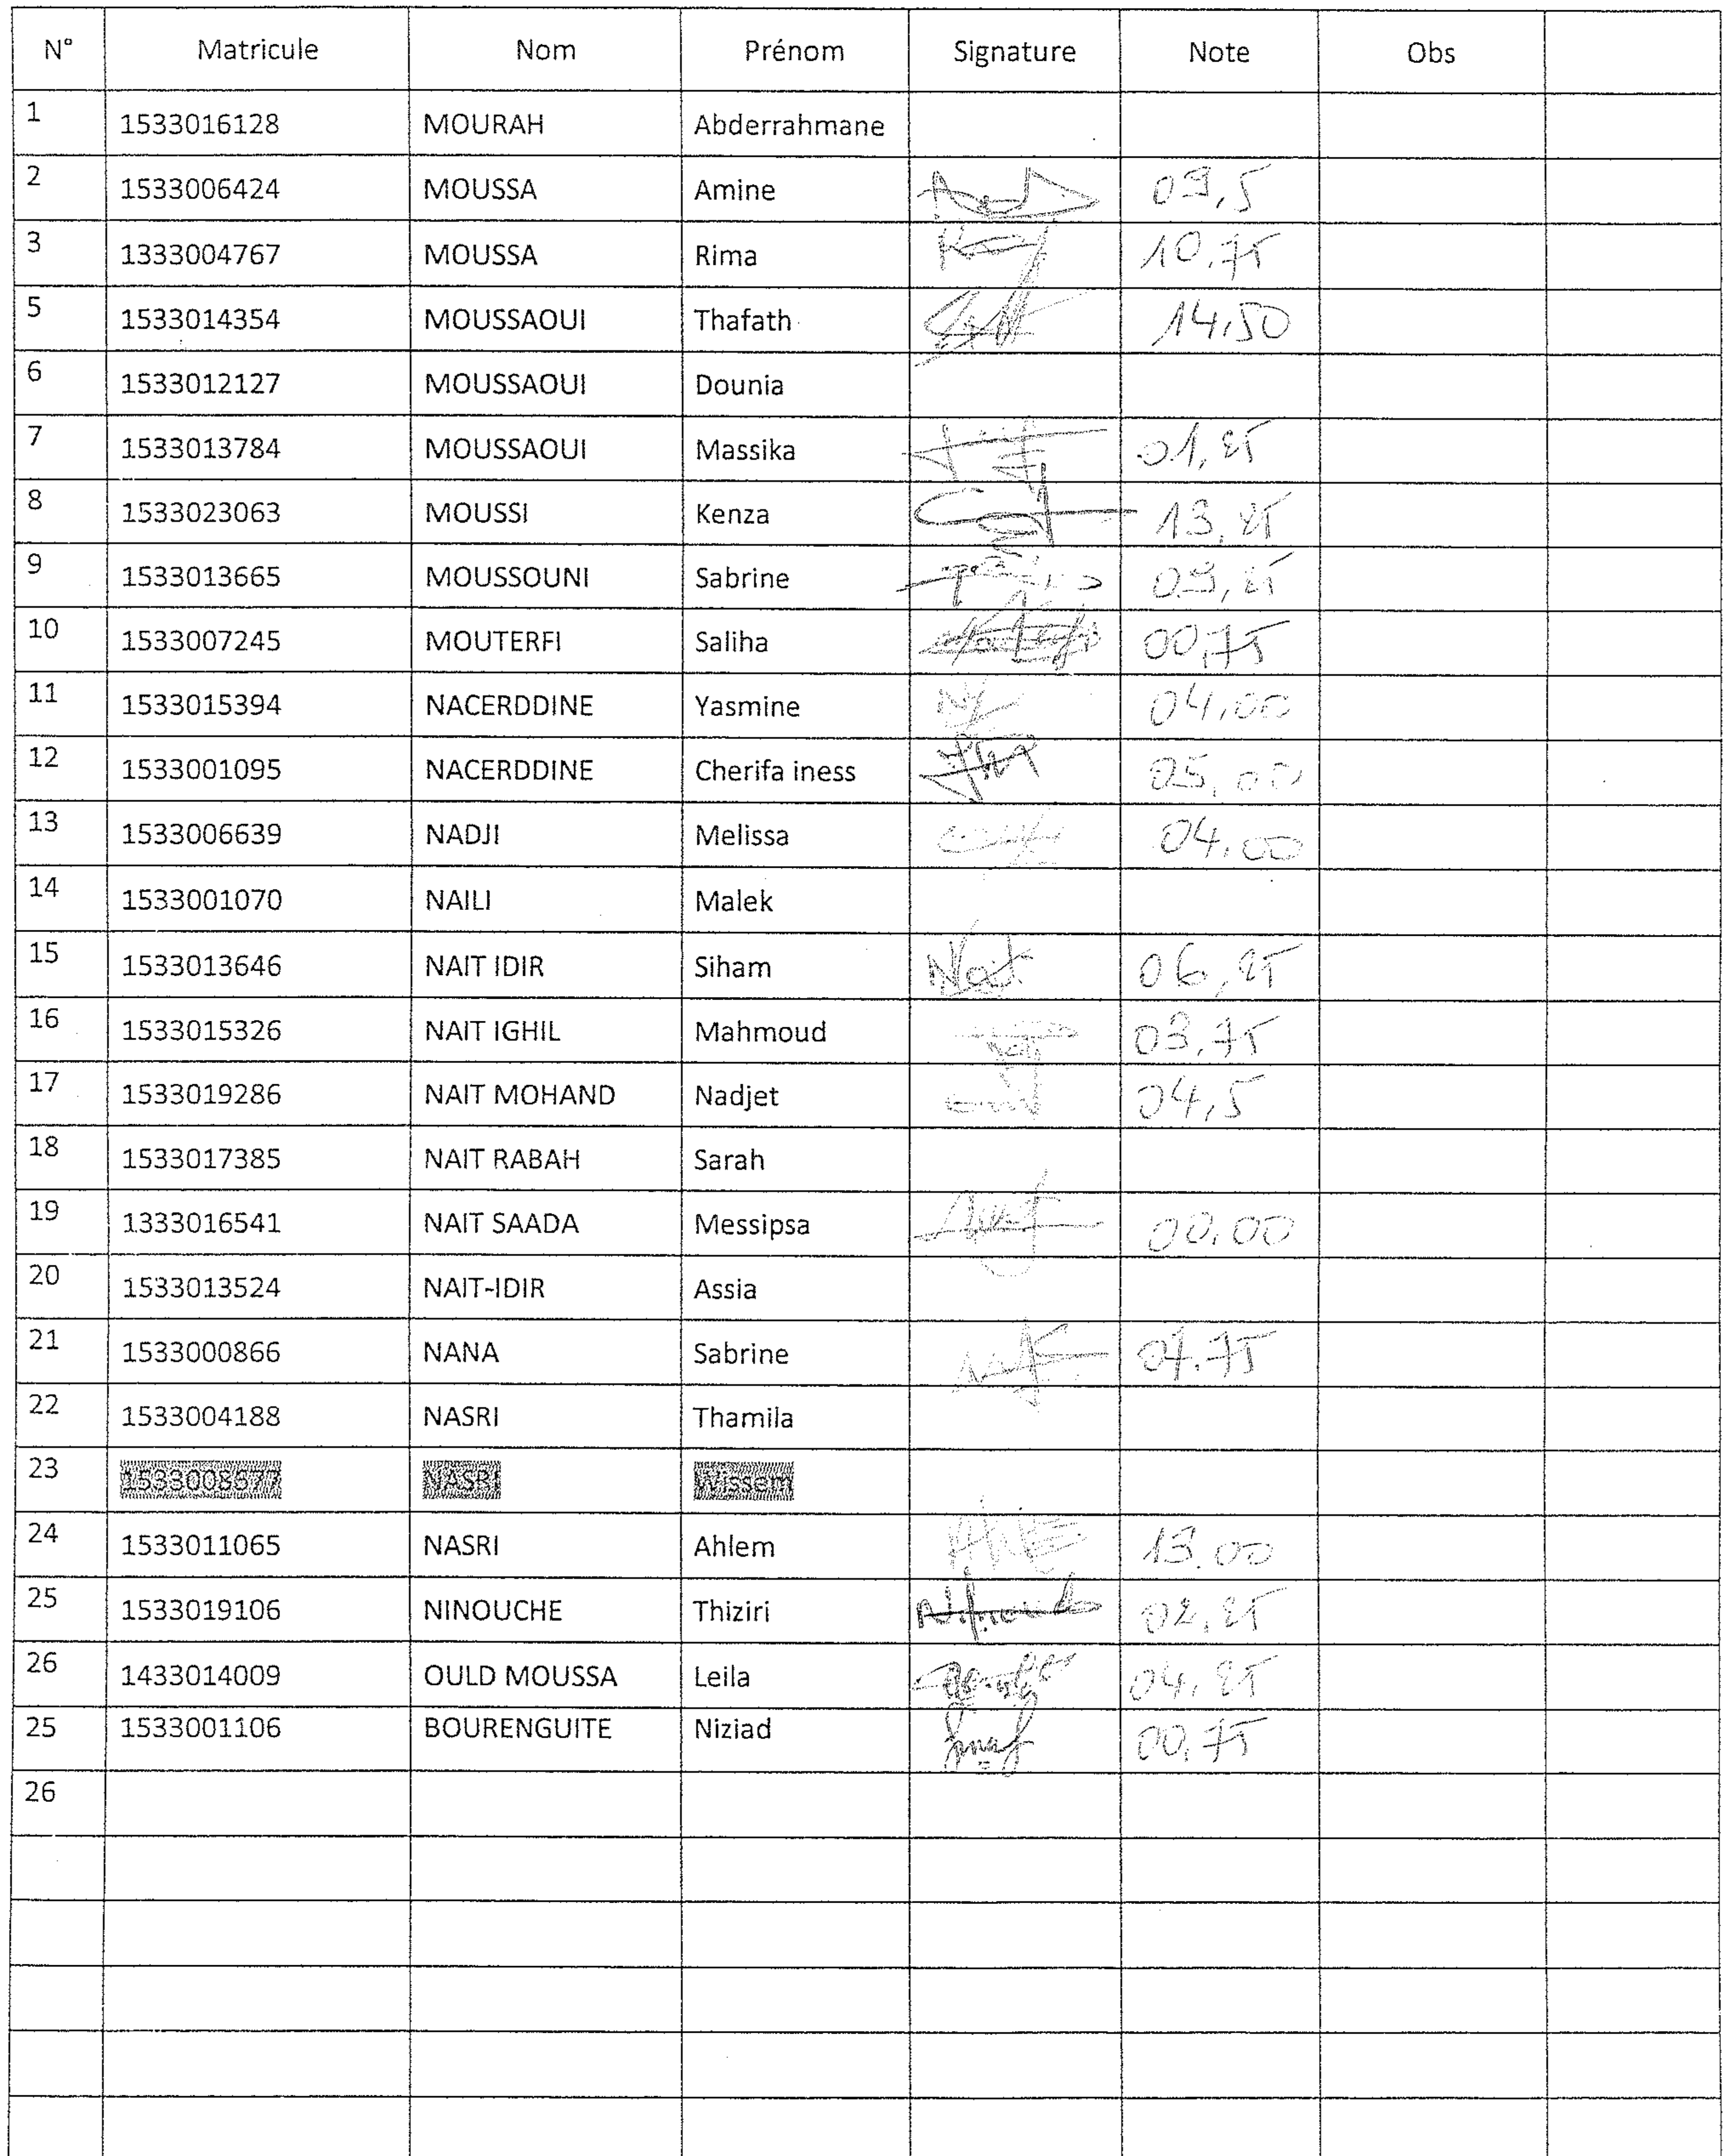 N° Matricule Nom Prénom Signature Note Obs
1 1533016128 MOURAH Abderrahmane
2 1533006424 MOUSSA Amine 09,5
3 1333004767 MOUSSA Rima 10,75
5 1533014354 MOUSSAOUI Thafath 14,50
6 1533012127 MOUSSAOUI Dounia
7 1533013784 MOUSSAOUI Massika 01,25
8 1533023063 MOUSSI Kenza 13,25
9 1533013665 MOUSSOUNI Sabrine 09,25
10 1533007245 MOUTERFI Saliha 00,75
11 1533015394 NACERDDINE Yasmine 04,00
12 1533001095 NACERDDINE Cherifa iness 05,00
13 1533006639 NADJI Melissa 04,00
14 1533001070 NAILI Malek
15 1533013646 NAIT IDIR Siham Nait 06,25
16 1533015326 NAIT IGHIL Mahmoud 03,75
17 1533019286 NAIT MOHAND Nadjet 04,5
18 1533017385 NAIT RABAH Sarah
19 1333016541 NAIT SAADA Messipsa 00,00
20 1533013524 NAIT-IDIR Assia
21 1533000866 NANA Sabrine 07,75
22 1533004188 NASRI Thamila
23 NASRI Wissem
24 1533011065 NASRI Ahlem 13.00
25 1533019106 NINOUCHE Thiziri 02,25
26 1433014009 OULD MOUSSA Leila 04,25
25 1533001106 BOURENGUITE Niziad 00,75
26